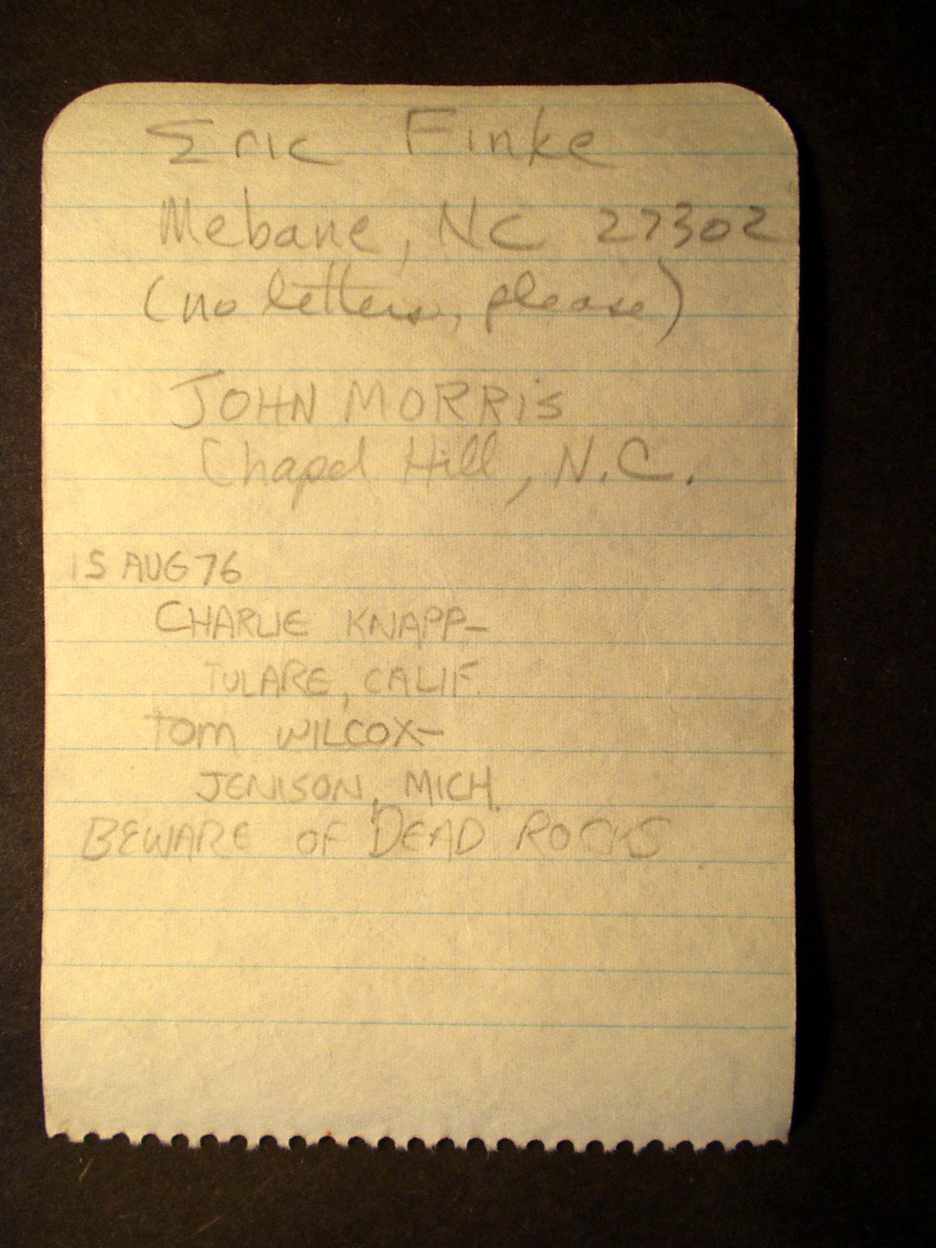 Eric Finke
Mebane, NC 27302
(no letters, please)
JOHN MORRiS
Chapel Hill, N.C.
15 AUG 76
CHARLIE KNAPP-
TULARE, CALIF.
Tom WILCOX-
JENISON, MICH.
BEWARE OF DEAD ROCKS